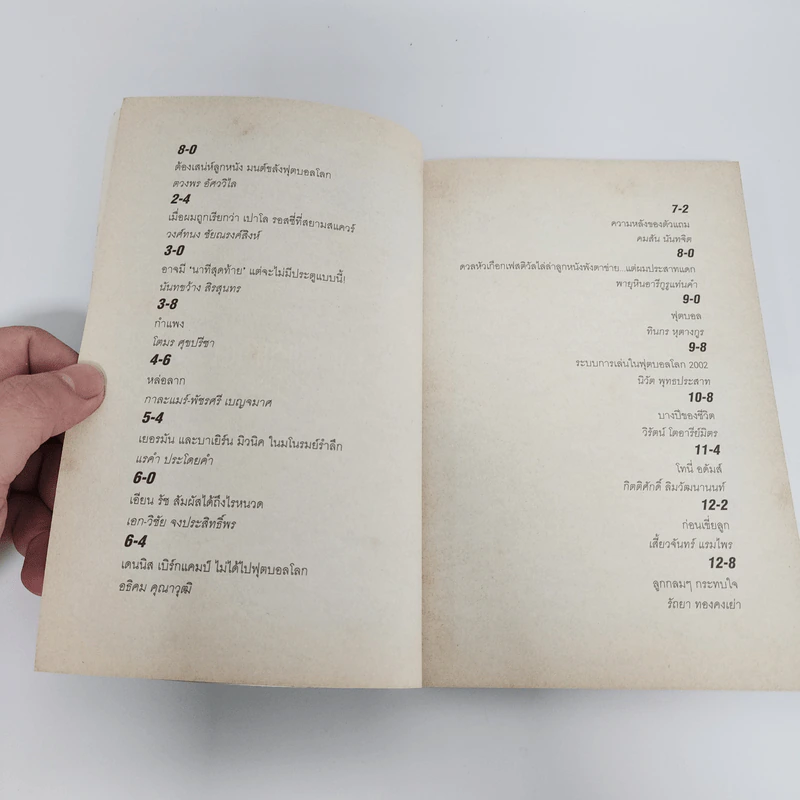 8-0
ต้องเสน่ห์ลูกหนัง มนต์ขลังฟุตบอลโลก
ดวงพร อัศววิไล
2-4
เมื่อผมถูกเรียกว่า เปาโล รอสซี่ที่สยามสแควร์
วงศ์ทนง ชัยณรงค์สิงห์
3-0
อาจมี 'นาทีสุดท้าย' แต่จะไม่มีประตูแบบนี้!
นันทขว้าง สิรสุนทร
3-8
กำแพง
โตมร ศุขปรีชา
4-6
หล่อลาก
กาละแมร์-พัชรศรี เบญจมาศ
5-4
เยอรมัน และบาเยิร์น มิวนิค ในมโนรมย์รำลึก
แรคำ ประโดยคำ
6-0
เอียน รัช สัมผัสได้ถึงไรหนวด
เอก-วิชัย จงประสิทธิ์พร
6-4
เดนนิส เบิร์กแคมป์ ไม่ได้ไปฟุตบอลโลก
อธิคม คุณาวุฒิ
7-2
ความหลังของตัวแถม
คมสัน นันทจิต
8-0
ดวลหัวเกือกเฟสติวัลไล่ล่าลูกหนังพังตาข่าย...แต่ผมประสาทแดก
พายุหินอารีกูรูแท่นคำ
9-0
ฟุตบอล
ทินกร หุตางกูร
9-8
ระบบการเล่นในฟุตบอลโลก 2002
นิวัต พุทธประสาท
10-8
บางปีของชีวิต
วิรัตน์ โตอารีย์มิตร
11-4
โทนี่ อดัมส์
กิตติศักดิ์ ลิมวัฒนานนท์
12-2
ก่อนเขี่ยลูก
เสี้ยวจันทร์ แรมไพร
12-8
ลูกกลมๆ กระทบใจ
รัถยา ทองคงเย่า